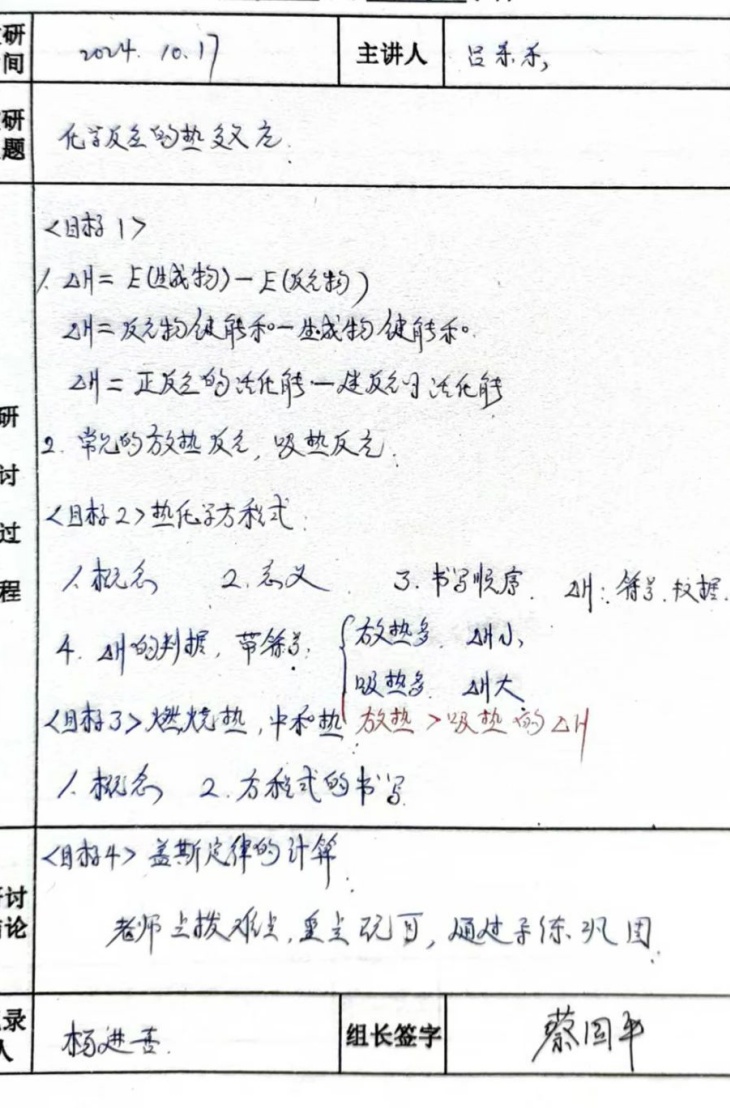 研
间
2024. 10. 17
主讲人
吕
研
题
化学反应的热效应.
<目标1>
1. △H= E(生成物)-E(反应物)
△H=反应物键能和-生成物键能和.
△H= 正反应的活化能-逆反应的活化能
2. 常见的放热反应, 吸热反应.
研
讨
过
程
<目标2>热化学方程式:
1. 概念 2. 意义 3. 书写顺序. △H: 符号.
4. △H的判据, 带符号: 放热多. △H小,
吸热多. △H大
<目标3>燃烧热, 中和热 放热>吸热的△H
1. 概念 2. 方程式的书写
<目标4> 盖斯定律的计算.
讨
论
老师点拨难点, 重点, 通过多练巩固.
录
人
杨进
组长签字
蔡国平